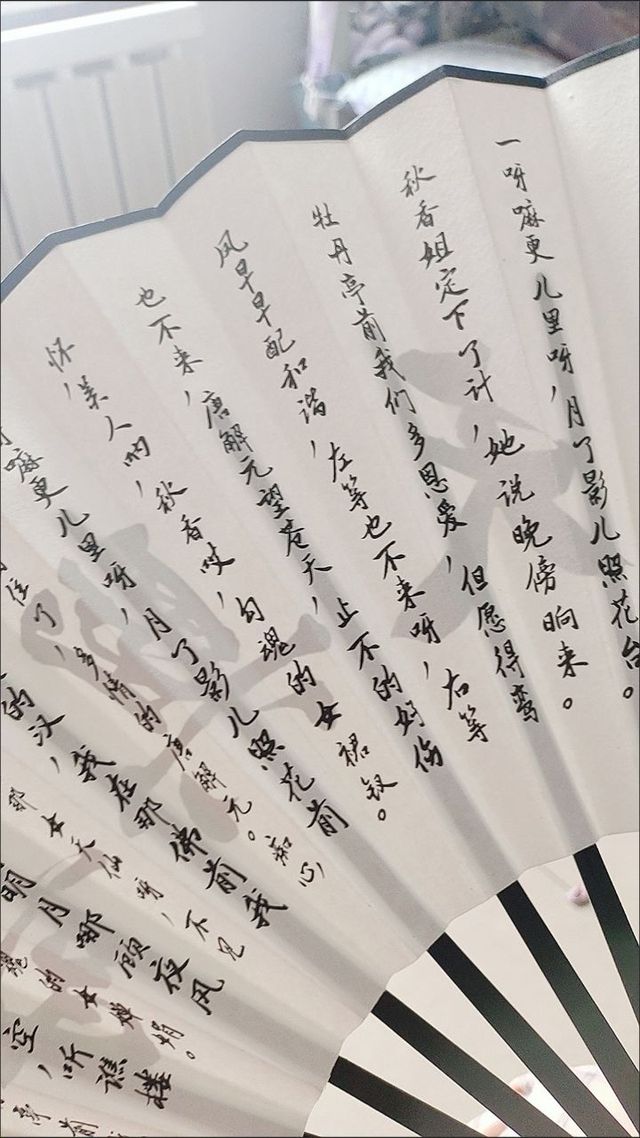 一呀嘛更儿里呀，月了影儿照花台。
秋香姐定下了计，她说晚傍晌来。
牡丹亭前我们多恩爱，但愿得鸾
凤早早配和谐，左等也不来呀，右等
也不来，唐解元望苍天，止不的好伤
怀，美人呐，秋香哎，勾魂的女裙钗。
嘛更儿里呀，月了影儿照花前
住了，多情的唐解元。痴心
的汉，我在那佛前我
那本天仙呀，不见
明月哪顾夜风
魂的女婵娟。
空，听谯楼
亭前